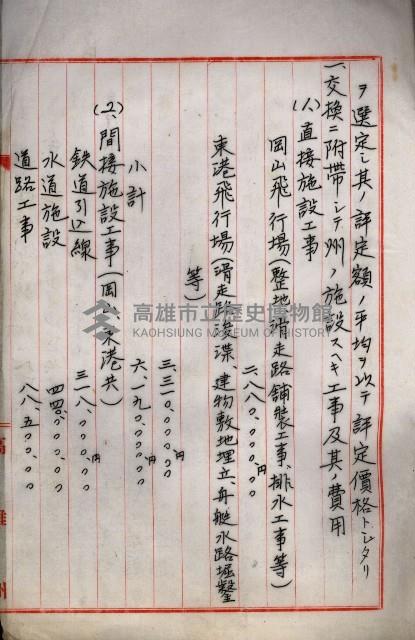 ヲ選定シ其ノ評定額ノ平均ヲ以テ評定価格トシタリ
一、交換ニ附帯シテ州ノ施設スヘキ工事及其ノ費用
(1)、直接施設工事
岡山飛行場(整地、滑走路舗装工事、排水工事等)
二.八八〇.〇〇〇円〇〇
東港飛行場(滑走路浚渫、建物敷地埋立、舟艇水路堀鑿
等)
三.三一〇.〇〇〇.〇〇
小計
六.一九〇.〇〇〇円〇〇
(2)、間接施設工事(岡山、東港共)
鉄道引込線
三一八.〇〇〇円〇〇
水道施設
四四〇.〇〇〇.〇〇
道路工事
八八.五〇〇.〇〇
高雄州
高雄市立歷史博物館
KAOHSIUNG MUSEUM OF HISTORY